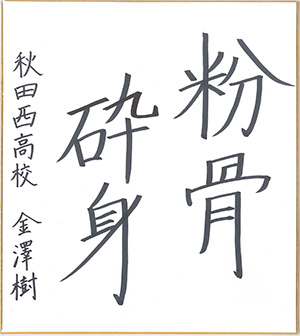 粉骨
砕身
秋田西高校 金澤樹